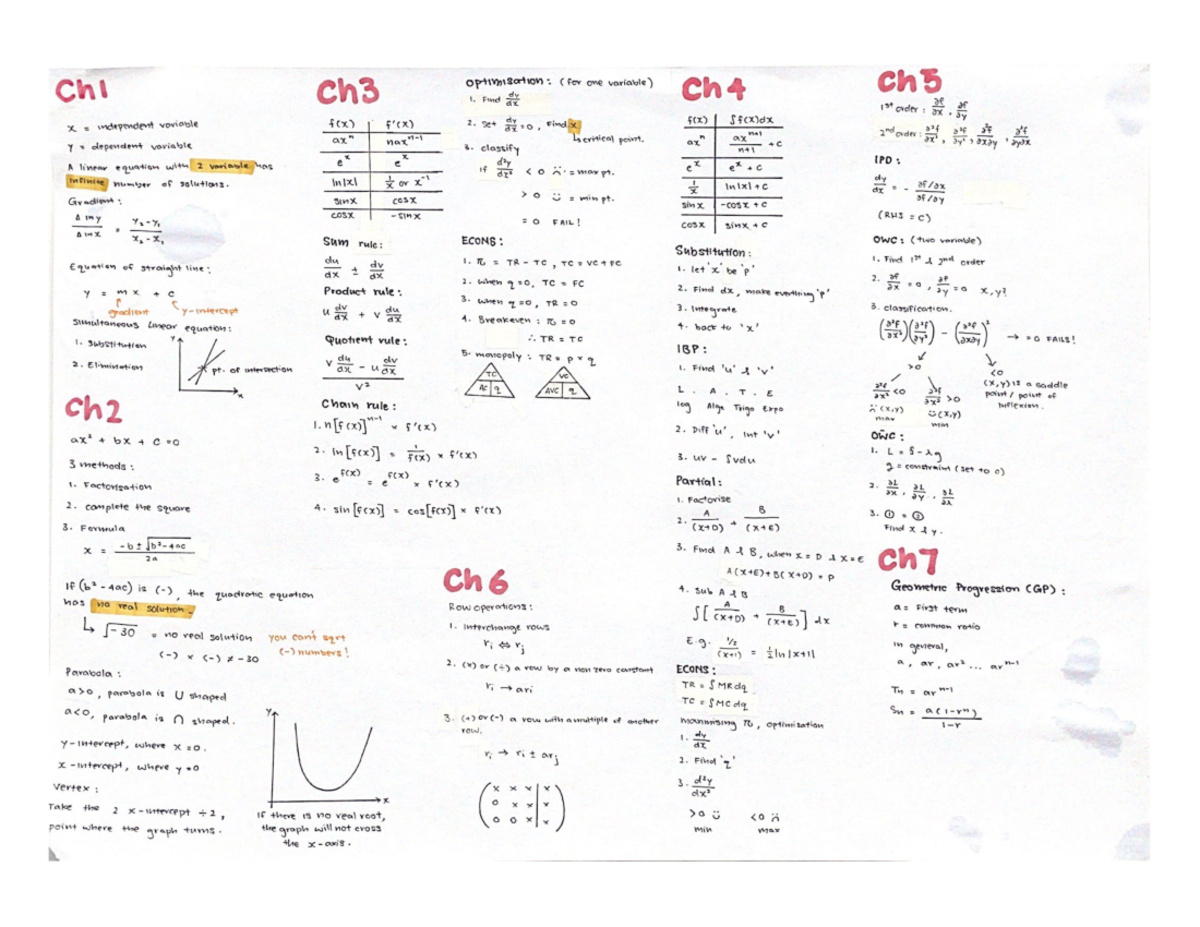 Ch1
x = independent variable
y = dependent variable
A linear equation with 2 variable has
infinite number of solutions.
Gradient :
Δ in y / Δ in x = y₂ - y₁ / x₂ - x₁
Equation of straight line :
y = mx + c
gradient y-intercept
Simultaneous Linear equation :
1. Substitution
2. Elimination
y
pt. of intersection
x
Ch2
ax² + bx + c = 0
3 methods :
1. Factorisation
2. complete the square
3. Formula
x = -b ± √b² - 4ac / 2a
If (b² - 4ac) is (-), the quadratic equation
has no real solution.
↳ √-30 = no real solution
(-) × (-) ≠ -30
you can't sqrt
(-) numbers !
Parabola :
a>0, parabola is ∪ shaped
a<0, parabola is ∩ shaped.
y-intercept, where x = 0.
x-intercept, where y = 0
Vertex :
Take the 2 x-intercept ÷ 2,
point where the graph turns.
y
x
If there is no real root,
the graph will not cross
the x-axis.
Ch3
f(x) | f'(x)
axⁿ | naxⁿ⁻¹
eˣ | eˣ
ln|x| | 1/x or x⁻¹
sinx | cosx
cosx | -sinx
Sum rule :
du/dx ± dv/dx
Product rule :
u dv/dx + v du/dx
Quotient rule :
v du/dx - u dv/dx / v²
Chain rule :
1. n[f(x)]ⁿ⁻¹ × f'(x)
2. ln[f(x)] = 1/f(x) × f'(x)
3. e^f(x) = e^f(x) × f'(x)
4. sin[f(x)] = cos[f(x)] × f'(x)
Optimisation : (for one variable)
1. Find dy/dx
2. Set dy/dx = 0, Find x
↳ critical point.
3. classify
if d²y/dx² < 0 = max pt.
> 0 = min pt.
= 0 FAIL!
ECONS :
1. π = TR - TC, TC = VC + FC
2. when q = 0, TC = FC
3. when q = 0, TR = 0
4. Breakeven : π = 0
∴ TR = TC
5. monopoly : TR = P × q
TC
AC q
VC
AVC q
Ch6
Row operations :
1. Interchange rows
rᵢ ⇔ rⱼ
2. (×) or (÷) a row by a non zero constant
rᵢ → arᵢ
3. (+) or (-) a row with a multiple of another
row.
rᵢ → rᵢ ± arⱼ
x x x | x
0 x x | x
0 0 x | x
Ch4
f(x) | ∫f(x)dx
axⁿ | axⁿ⁺¹ / n+1 + c
eˣ | eˣ + c
1/x | ln|x| + c
sinx | -cosx + c
cosx | sinx + c
Substitution :
1. let 'x' be 'p'
2. Find dx, make everything 'p'
3. Integrate
4. back to 'x'
IBP :
1. Find 'u' & 'v'
L . A . T . E
log Alge Trigo Expo
2. Diff 'u', Int 'v'
3. uv - ∫vdu
Partial :
1. Factorise
2. A / (x+D) + B / (x+E)
3. Find A & B, when x = D & x = E
A(x+E) + B(x+D) = P
4. sub A & B
∫[ A / (x+D) + B / (x+E) ] dx
E.g. ½ / (x+1) = ½ ln|x+1|
ECONS :
TR = ∫MR dq
TC = ∫MC dq
maximising π, optimisation
1. dy/dx
2. Find 'q'
3. d²y/dx²
>0 <0
min max
Ch5
1st order : ∂f/∂x, ∂f/∂y
2nd order : ∂²f/∂x², ∂²f/∂y², ∂²f/∂x∂y, ∂²f/∂y∂x
IPD :
dy/dx = - ∂f/∂x / ∂f/∂y
(RHS = C)
OWC : (two variable)
1. Find 1st & 2nd order
2. ∂f/∂x = 0, ∂f/∂y = 0 x, y?
3. classification.
(∂²f/∂x²)(∂²f/∂y²) - (∂²f/∂x∂y)² → = 0 FAILS!
>0 <0
∂²f/∂x² <0 ∂²f/∂x² >0
(x,y) (x,y)
max min
(x,y) is a saddle
point / point of
inflexion.
OWC :
1. L = f - λg
g = constraint (set to 0)
2. ∂L/∂x, ∂L/∂y, ∂L/∂λ
3. ① = ②
Find x & y.
Ch7
Geometric Progression (GP) :
a = First term
r = common ratio
in general,
a, ar, ar² ... arⁿ⁻¹
Tn = arⁿ⁻¹
Sn = a(1-rⁿ) / 1-r